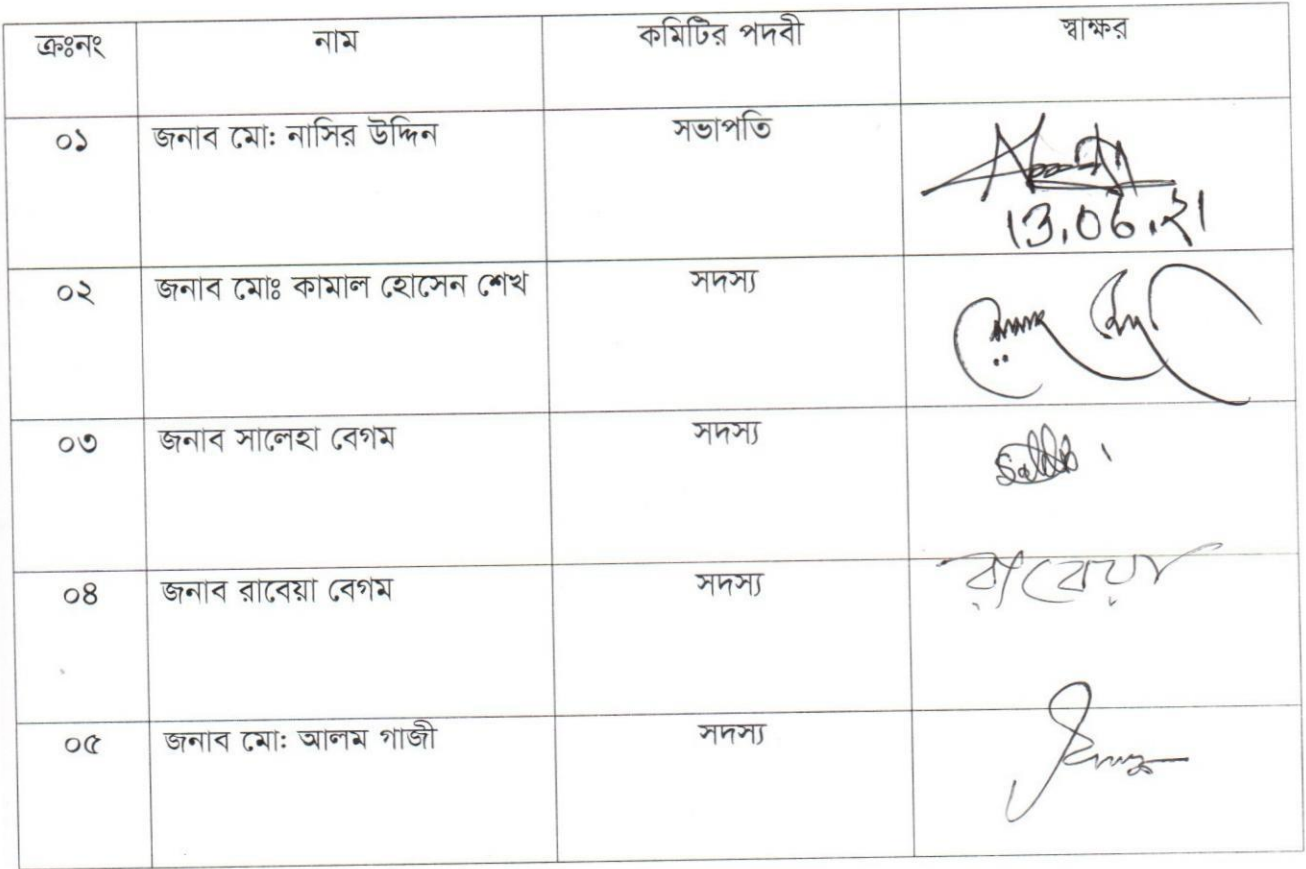 ক্রঃনং নাম কমিটির পদবী স্বাক্ষর
০১ জনাব মো: নাসির উদ্দিন সভাপতি
13.06.21
০২ জনাব মোঃ কামাল হোসেন শেখ সদস্য
০৩ জনাব সালেহা বেগম সদস্য
০৪ জনাব রাবেয়া বেগম সদস্য রাবেয়া
০৫ জনাব মো: আলম গাজী সদস্য